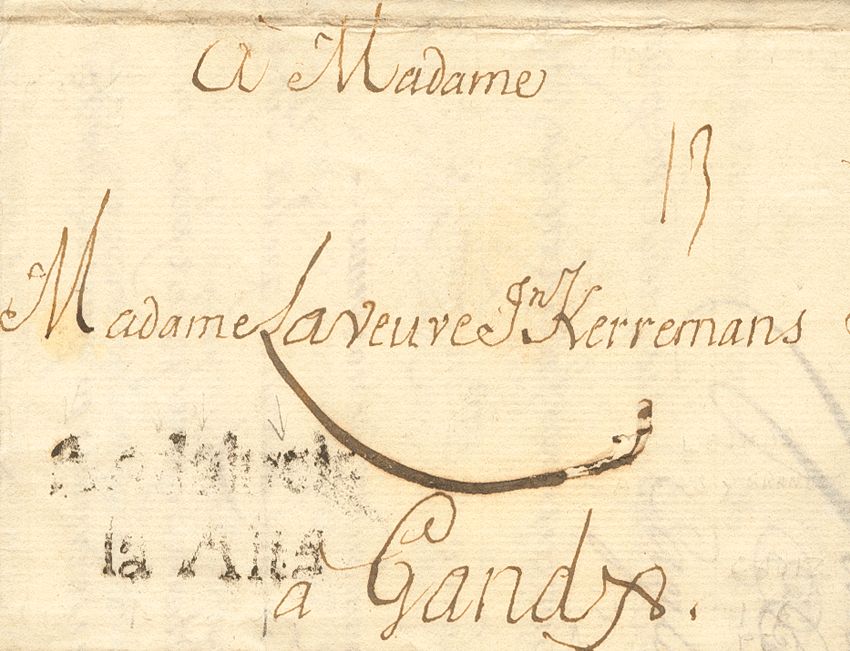 à Madame
13
Madame La veuve Jn Kerremans
Andalucia
la Alta
à Gand